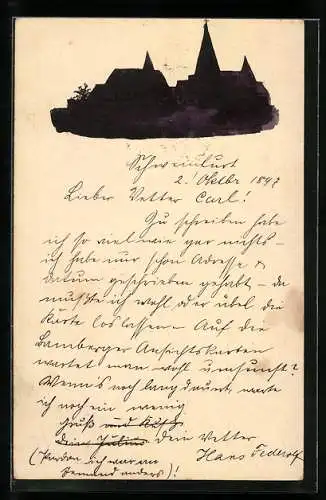 Schweinfurt
2. Oktbr 1897
Lieber Vetter Carl!
Zu schreiben habe
ich so viel wie gar nichts –
ich habe nur schon Adresse &
Datum geschrieben gehabt – da
mußte ich wohl oder übel die
Karte loslassen – Auf die
Bamberger Ansichtskarten
wartet man wohl umsonst?
Wenn's noch lang dauert, warte
ich noch ein wenig
Gruß und
Dein Julius dein Vetter
Hans Federolf
(Pardon ich war am
Jemand anders)!